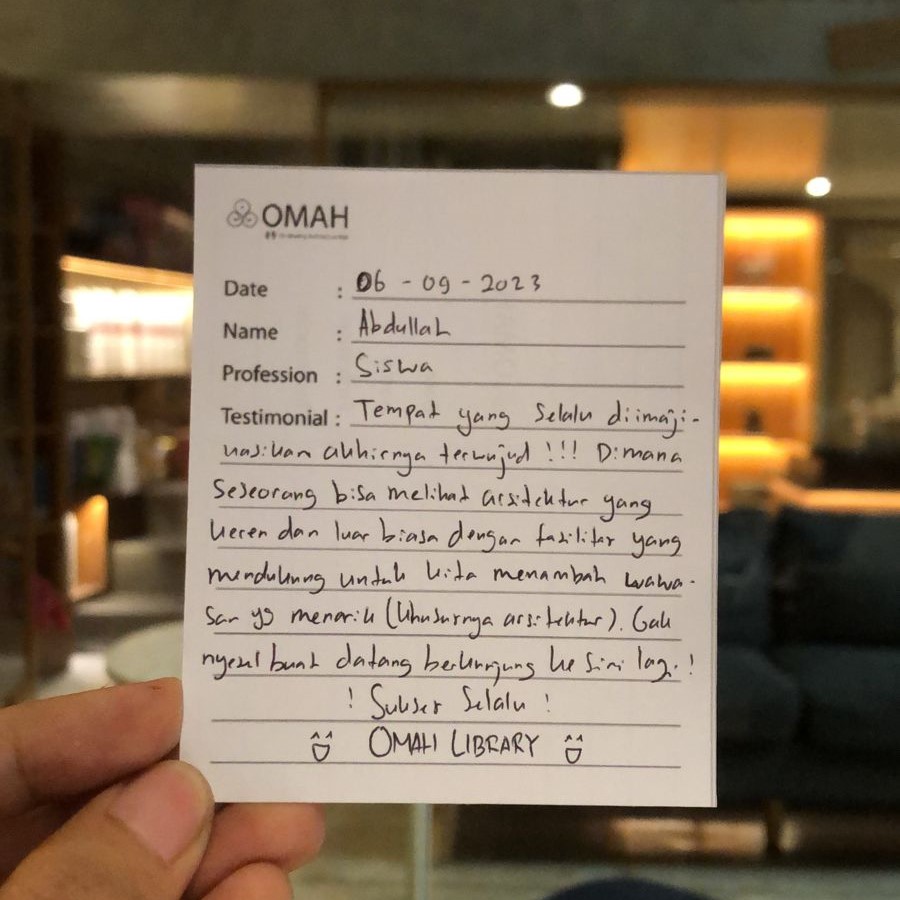 OMAH
Date : 06 - 09 - 2023
Name : Abdullah
Profession : Siswa
Testimonial : Tempat yang Selalu diimaji-
nasikan akhirnya terwujud !!! Dimana
Seseorang bisa melihat arsitektur yang
keren dan luar biasa dengan fasilitas yang
mendukung untuk kita menambah wawa-
san yg menarik (khususnya arsitektur). Gak
nyesel buat datang berkunjung ke sini lagi!
! Sukses Selalu !
OMAH LIBRARY